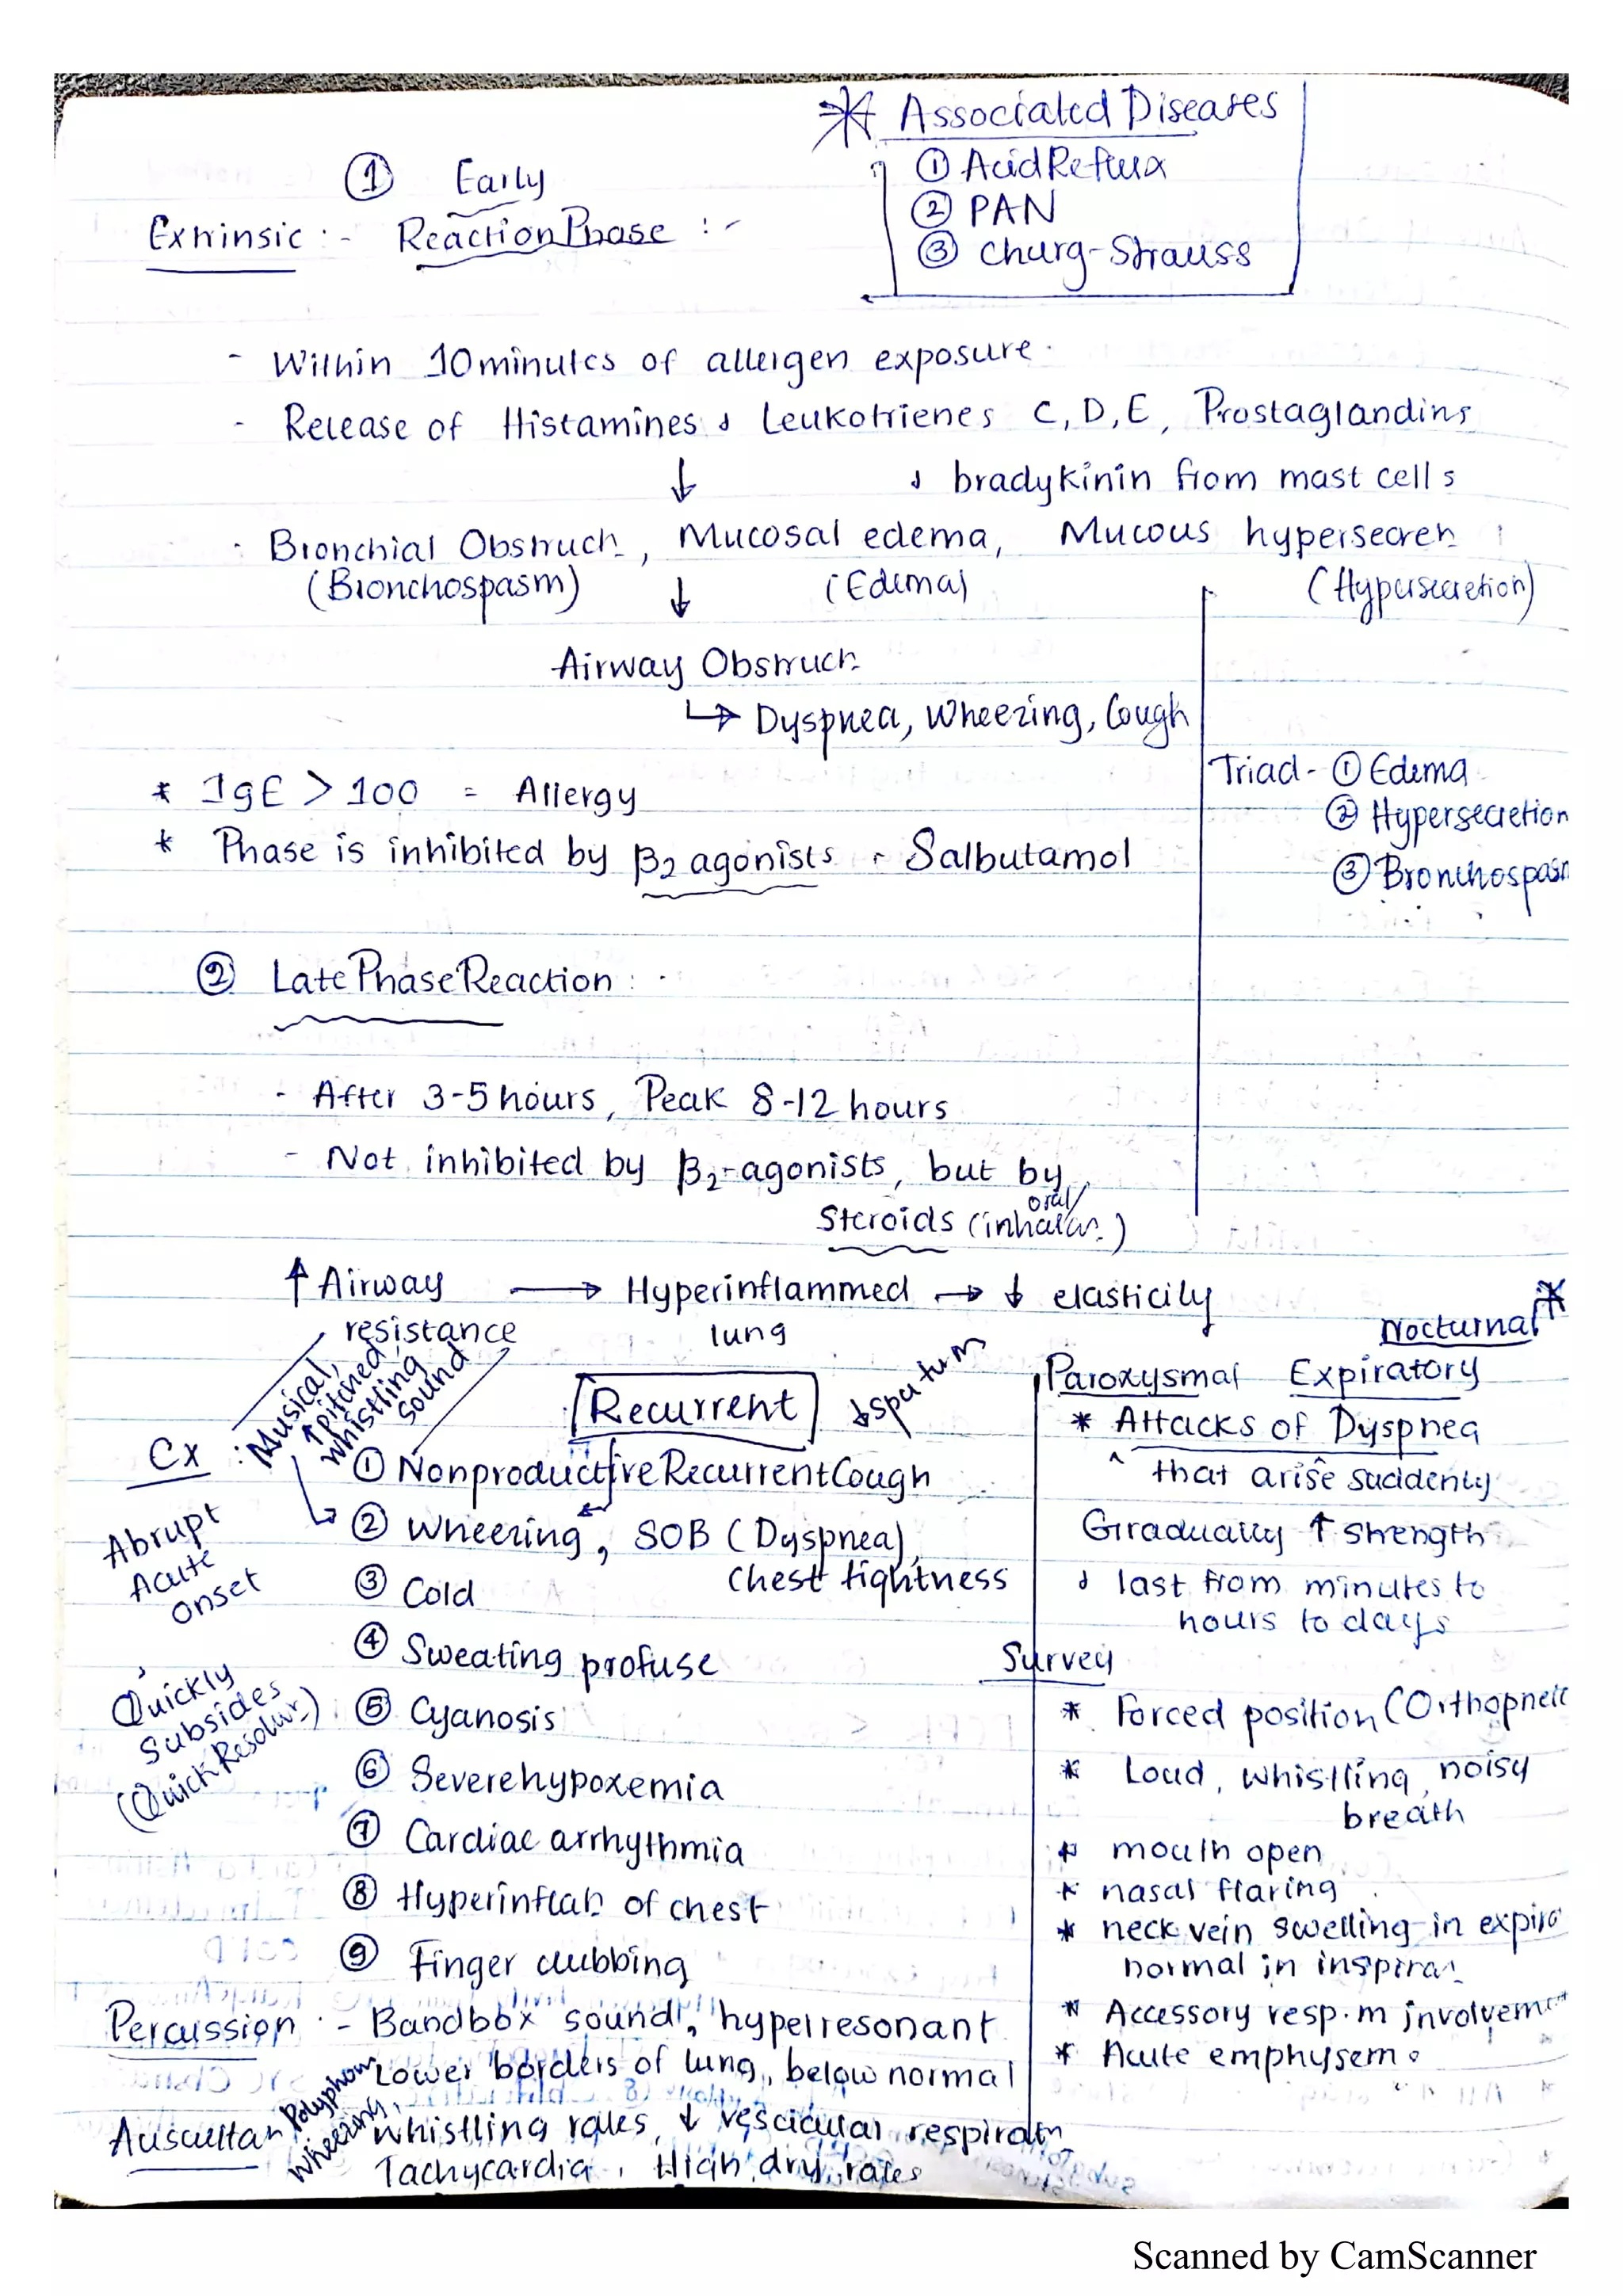 * Associated Diseases
① Acid Reflux
② PAN
③ Churg-Strauss
① Early
Extrinsic :- Reaction Phase :-
- Within 10 minutes of allergen exposure.
- Release of Histamines & Leukotrienes C, D, E, Prostaglandins
↓ & bradykinin from mast cells
- Bronchial Obstruc , Mucosal edema, Mucous hypersecre
(Bronchospasm) ↓ (Edema) (Hypersecretion)
Airway Obstruc
↳ Dyspnea, Wheezing, Cough
Triad - ① Edema
② Hypersecretion
③ Bronchospasm
* IgE > 100 = Allergy
* Phase is inhibited by β2 agonists - Salbutamol
② Late Phase Reaction : -
- After 3-5 hours, Peak 8-12 hours
- Not inhibited by β2-agonists, but by
oral/
Steroids (inhala )
↑ Airway → Hyperinflammed → ↓ elasticity
resistance lung
Musical,
↑ pitched,
whistling
sound
Recurrent
↓ sputum
Cx :
① Nonproductive Recurrent Cough
② Wheezing, SOB (Dyspnea),
Chest tightness
③ Cold
④ Sweating profuse
⑤ Cyanosis
⑥ Severe hypoxemia
⑦ Cardiac arrhythmia
⑧ Hyperinfla of chest
⑨ Finger clubbing
Abrupt
Acute
onset
Quickly
Subsides
(Quick Resolu )
Nocturnal *
Paroxysmal Expiratory
* Attacks of Dyspnea
^ that arise suddenly
Gradually ↑ strength
& last from minutes to
hours to days
Survey
* Forced position (Orthopneic
* Loud, whistling, noisy
breath
* mouth open
* nasal flaring
* neck vein swelling in expira
normal in inspira
* Accessory resp. m involvement
* Acute emphysem
Percussion :- Bandbox sound, hyperresonant
Lower borders of lung, below normal
Ausculta
Polyphon
Wheezing,
whistling rales, ↓ vescicular respiratn
Tachycardia, High, dry, rales
Scanned by CamScanner